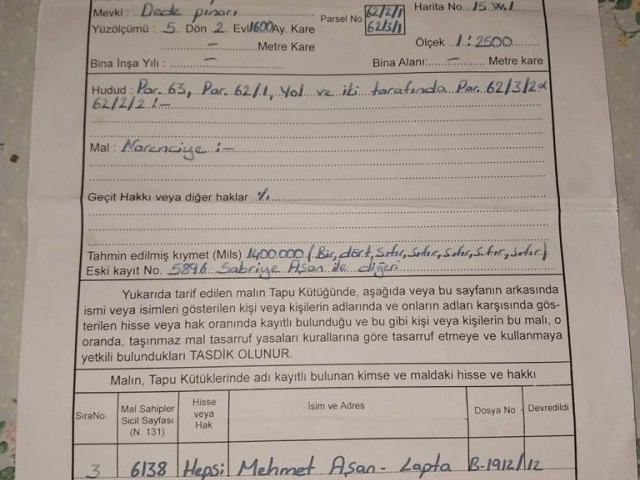 Mevki : Dede pınarı Parsel No. 62/2/1 Harita No. 15. W. 1
62/3/1
Yüzölçümü : 5 Dön 2 Evl 1600 Ay. Kare
– Metre Kare Ölçek 1 : 2500
Bina İnşa Yılı : – Bina Alanı: – Metre kare
Hudud : Par. 63, Par. 62/1, Yol ve iki tarafında Par. 62/3/2
62/2/2 :-
Mal : Narenciye :-
Geçit Hakkı veya diğer haklar
Tahmin edilmiş kıymet (Mils) 1400.000 (Bir, dört, Sıfır, Sıfır, Sıfır, Sıfır, Sıfır)
Eski kayıt No. 5896 Sabriye Aşan ile diğeri
Yukarıda tarif edilen malın Tapu Kütüğünde, aşağıda veya bu sayfanın arkasında
ismi veya isimleri gösterilen kişi veya kişilerin adlarında ve onların adları karşısında gös-
terilen hisse veya hak oranında kayıtlı bulunduğu ve bu gibi kişi veya kişilerin bu malı, o
oranda, taşınmaz mal tasarruf yasaları kurallarına göre tasarruf etmeye ve kullanmaya
yetkili bulundukları TASDİK OLUNUR.
Malın, Tapu Kütüklerinde adı kayıtlı bulunan kimse ve maldaki hisse ve hakkı
SıraNo. Mal Sahipler Sicil Sayfası (N. 131) Hisse veya Hak İsim ve Adres Dosya No Devredildi
3 6138 Hepsi Mehmet Aşan - Lapta B-1912/12